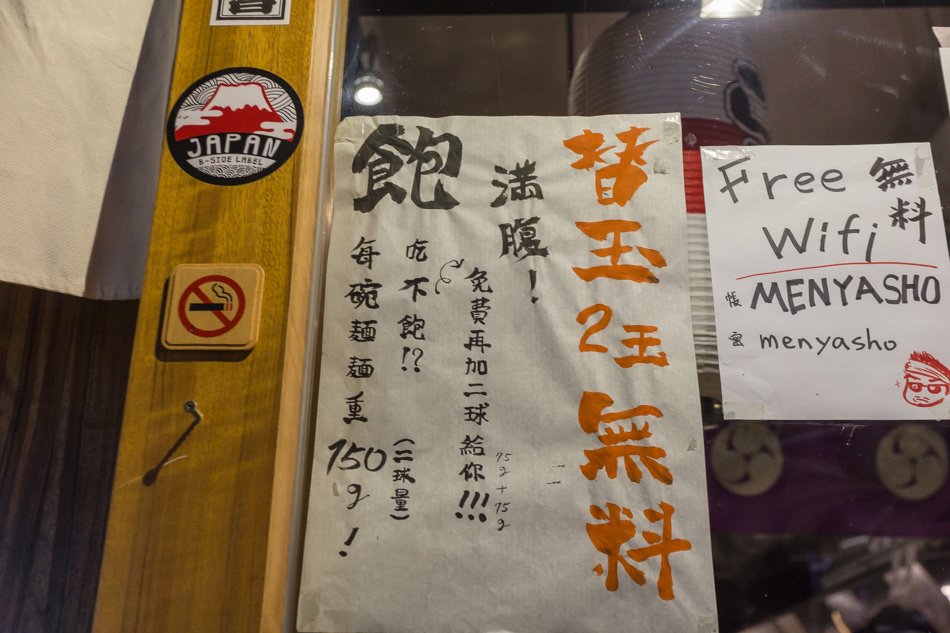 JAPAN
B-SIDE LABEL
替玉2玉無料
満腹!
飽
免費再加二球給你!!!
75g+75g
吃不飽!?
(二球量)
每碗麵麵重150g!
Free
無料
Wifi
MENYASHO
帳
密
menyasho